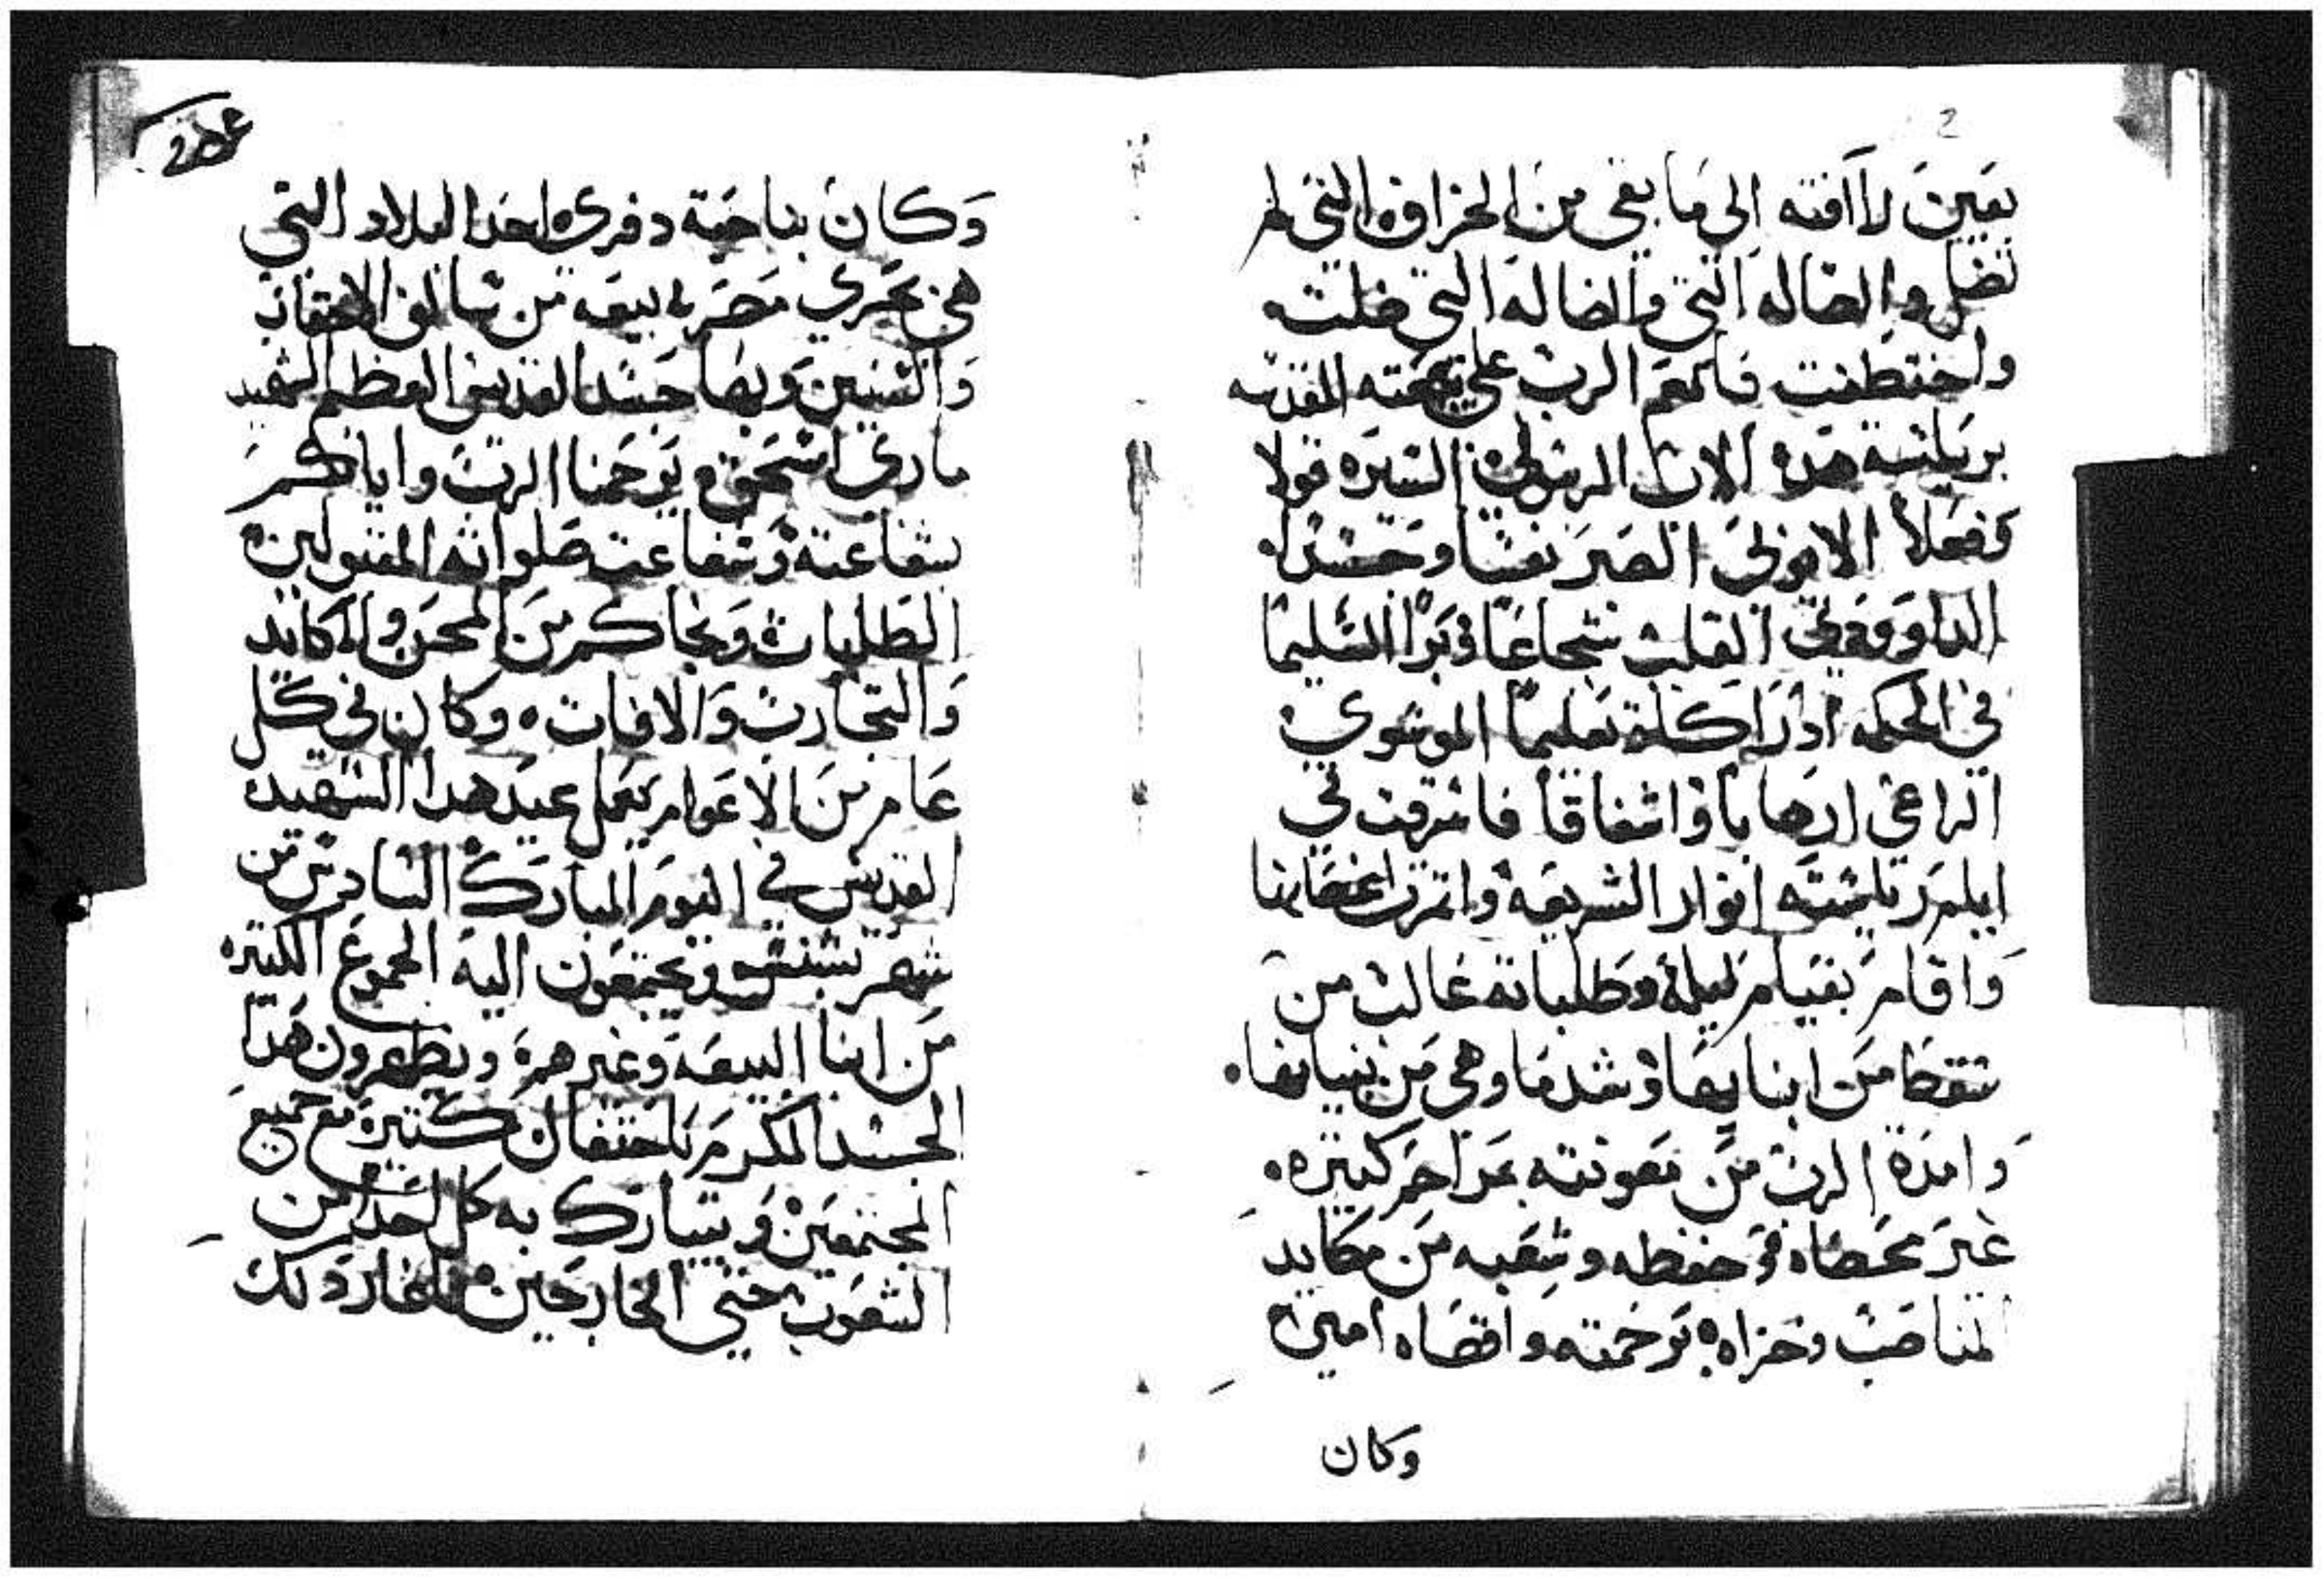 بعين لا افته الى ما بقى من الخراف التي لم
تضل والضاله التي والضاله التي ضلت
واختطفت فانعم الرب على بيعته المقدسه
برياسة هذه الاب الرسولي السيره قولا
وفعلا الابولي الصبر نفسا وجسدا
الداوودي القلب شجاعا وبرا السليما
في الحكمه ادراكا تعليما الموسوي
الراعي ارهابا واشفاقا فاشرقت في
ايام رياسته انوار الشريعه واثمرت اغصانها
واقام بقيام ليله وطلباته غالب من
سقط من ابنايها وشد ما وهى من بنيانها
وامده الرب من معونته بمراحم كثيره
غير محصاه في حفظه وشعبه من مكايد
المناصب وجزاه برحمته واقصاه امين
وكان
وكان بناحية دفرى احد البلاد التي
هي بحري مصر بيعه من سالف الاحقاب
والسنين وبها جسد القديس العظيم الشهيد
ماري اسحق يرحمنا الرب واياكم
بشفاعته وشفاعت صلواته المقبولين
الطلبات ونجاكم من المحن والمكايد
والتجارب والافات وكان في كل
عام من الاعوام يعمل عيد هدا الشهيد
القديس في اليوم المبارك السادس من
شهر بشنس ويجتمعون اليه الجموع الكثيره
من ابنا البيعه وغيرهم ويظهرون هدا
الجسد المكرم باحتفال كثير مع جميع
المجتمعين ويتبارك به كل احد من
الشعوب حتى الخارجين فلما ذلك